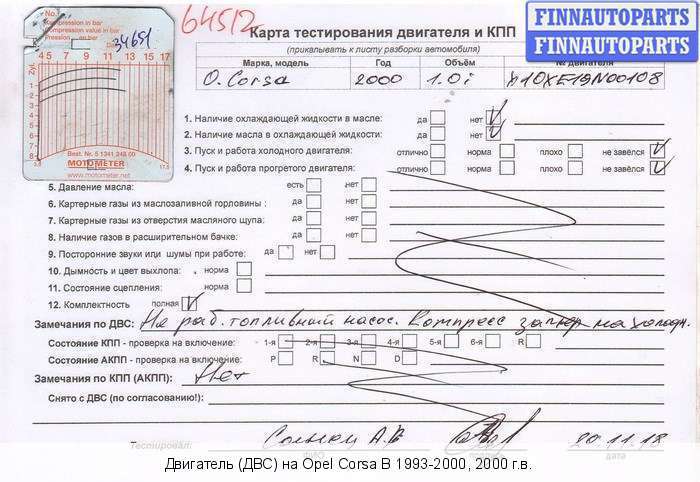 64512
FINNAUTOPARTS
FINNAUTOPARTS
No.
Compression in bar
Compression value in bar
Pression en bar
34651
4 5 7 9 11 13 15 17
Zyl.
1
2
3
4
5
6
7
8
3,5 17,5
Best. Nr. 5 1341 243 00
MOTOMETER
www.motometer.net
Карта тестирования двигателя и КПП
(прикалывать к листу разборки автомобиля)
Марка, модель Год Объём № двигателя
O. Corsa 2000 1.0i X10XE19N00108
1. Наличие охлаждающей жидкости в масле: да нет
2. Наличие масла в охлаждающей жидкости: да нет
3. Пуск и работа холодного двигателя: отлично норма плохо не завёлся
4. Пуск и работа прогретого двигателя: отлично норма плохо не завёлся
5. Давление масла: есть нет
6. Картерные газы из маслозаливной горловины : да нет
7. Картерные газы из отверстия масляного щупа: да нет
8. Наличие газов в расширительном бачке: да нет
9. Посторонние звуки или шумы при работе: да нет
10. Дымность и цвет выхлопа: норма
11. Состояние сцепления: норма
12. Комплектность полная
Замечания по ДВС: Не раб. топливный насос. Компресс замер на холодн.
Состояние КПП - проверка на включение: 1-я 2-я 3-я 4-я 5-я 6-я R
Состояние АКПП - проверка на включение: P R N D
Замечания по КПП (АКПП): Нет
Снято с ДВС (по согласованию!):
Тестировал: А.В 20.11.18
ФИО подпись дата
Двигатель (ДВС) на Opel Corsa B 1993-2000, 2000 г.в.